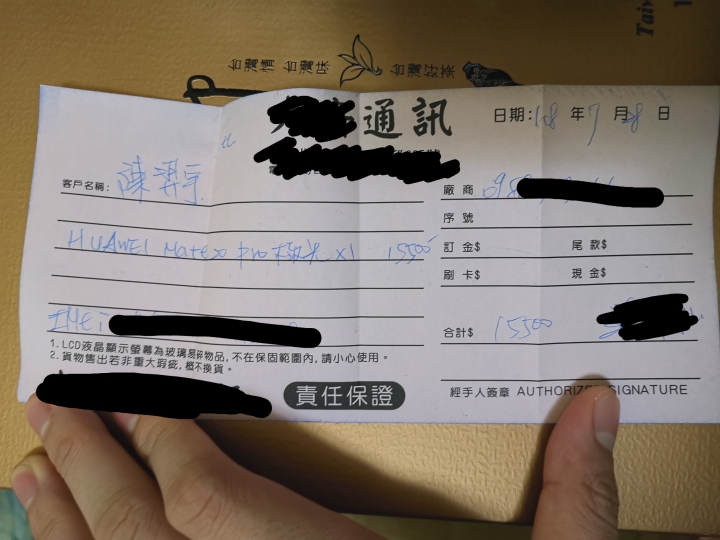 台灣情 台灣味
台灣好茶
Taiw
通訊
日期: 108 年 7 月 28 日
客戶名稱: 陳羿宇
廠商 098
序號
HUAWEI Mate20 pro 極光 x1 15500
訂金$ 尾款$
刷卡$ 現金$
IMEi
合計$ 15500
1. LCD液晶顯示螢幕為玻璃易碎物品, 不在保固範圍內, 請小心使用。
2. 貨物售出若非重大瑕疵, 概不換貨。
責任保證
經手人簽章 AUTHORIZED SIGNATURE